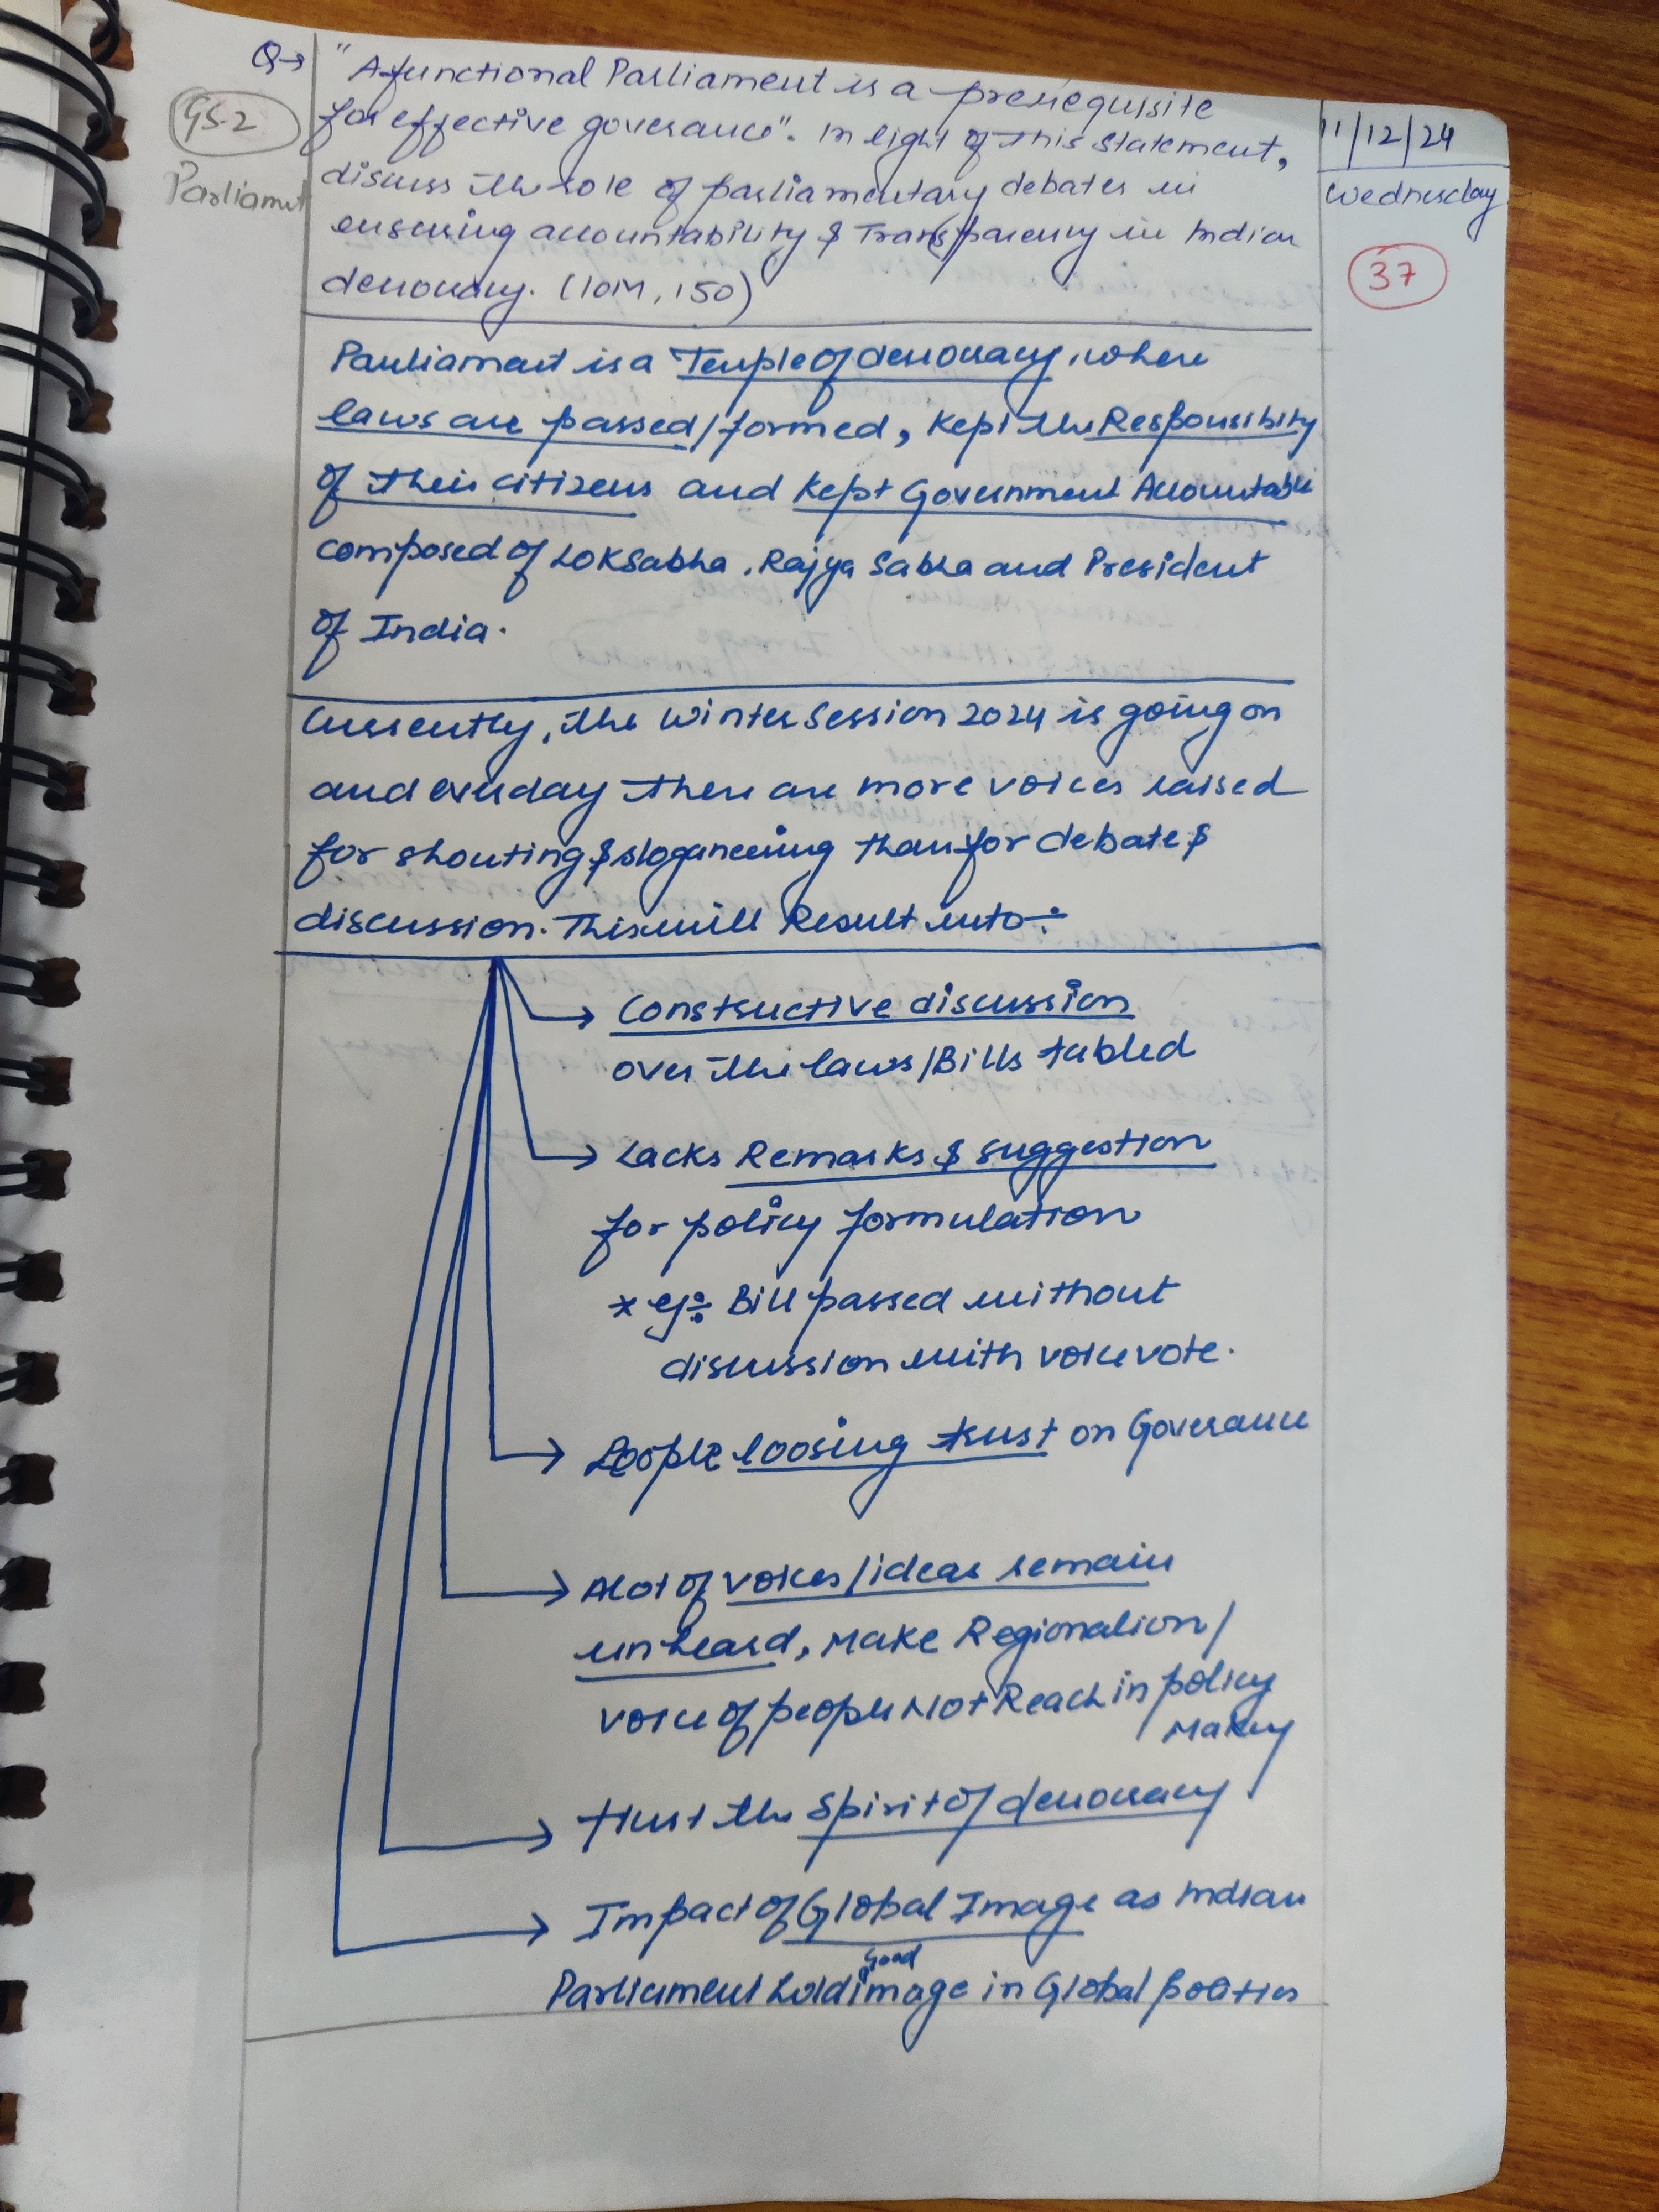 Q→ "A functional Parliament is a prerequisite
GS-2
for effective goverance". In light of this statement,
11/12/24
Parliament
discuss the role of parliamentary debates in
Wednesday
ensuring accountability & Transparency in Indian
37
democracy. (10M, 150)
Parliament is a Temple of democracy, where
laws are passed/formed, Kept the Responsibity
of their citizens and Kept Government Accountable
composed of Lok Sabha, Rajya Sabha and President
of India.
Currently, the Winter Session 2024 is going on
and everday there are more voices raised
for shouting & sloganeering than for debate &
discussion. This will Result into:-
→ Constructive discussion
over the laws/Bills tabled
→ Lacks Remarks & suggestion
for policy formulation
* eg:- Bill passed without
discussion with voice vote.
→ People loosing trust on Goverance
→ A lot of voices/ideas remain
unheard, Make Regionalion/
voice of people Not Reach in policy
Making
→ Hurt the Spirit of democracy
→ Impact of Global Image as Indian
Parliament hold good image in Global politics